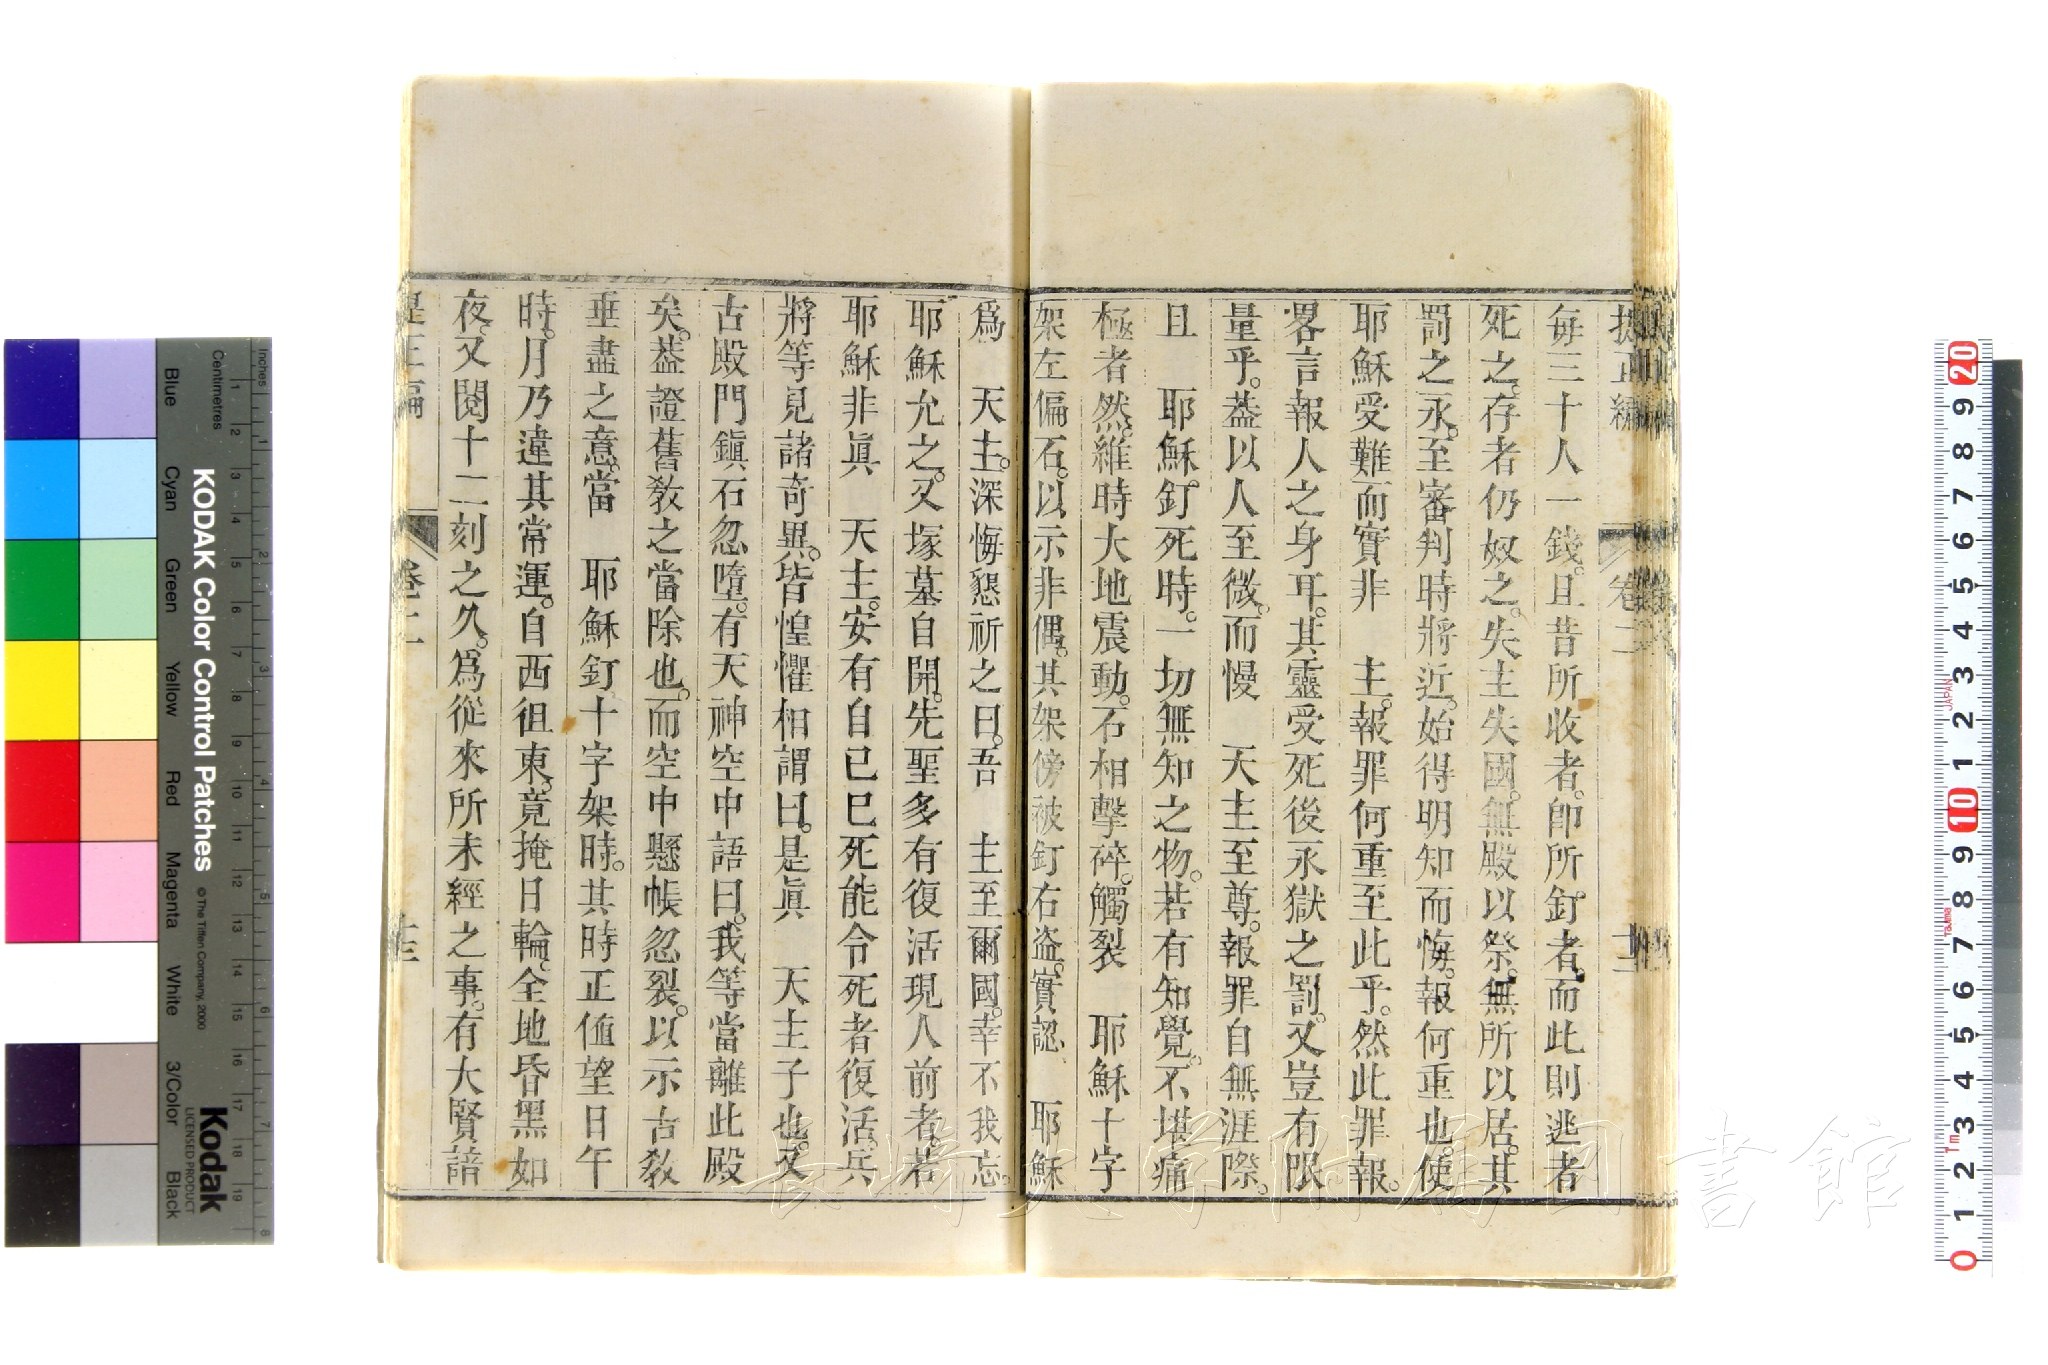 提正編　卷二
毎三十人一錢。且昔所收者。卽所釘者。而此則逃者
死之。存者仍奴之。失主失國。無殿以祭。無所以居。其
罰之永。至審判時將近。始得明知而悔。報何重也。使
耶穌受難而實非　主。報罪何重至此乎。然此罪報。
畧言報人之身耳。其靈受死後永獄之罰。又豈有限
量乎。葢以人至微。而慢　天主至尊。報罪自無涯際。
且　耶穌。釘死時。一切無知之物。若有知覺。不堪痛
極者然。維時大地震動。石相擊碎。觸裂　耶穌十字
架左偏石。以示非偶。其架傍被釘右盜。實認　耶穌
爲　天主。深悔懇祈之曰。吾　主至爾國。幸不我忘。
耶穌允之。又塚墓自開。先聖多有復活現人前者。若
耶穌非眞　天主。安有自己已死能令死者復活。兵
將等見諸奇異。皆惶懼相謂曰。是眞　天主子也。又
古殿門鎭石忽墮。有天神空中語曰。我等當離此殿
矣。葢證舊敎之當除也。而空中懸帳忽裂。以示古敎
垂盡之意。當　耶穌釘十字架時。其時正値望日午
時。月乃違其常運。自西徂東。竟掩日輪。全地昏黑如
夜。又閱十二刻之久。爲從來所未經之事。有大賢諳
卷二